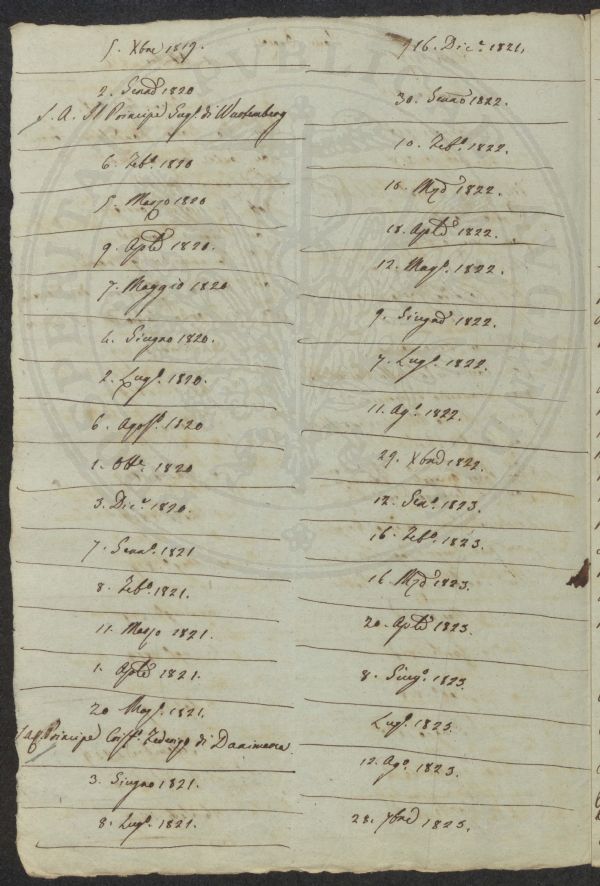 5. Xbre 1819.
2. Genno 1820
S. A. Il Principe Eugo. di Wurtemberg
6. Febo. 1820
5. Marzo 1820
9. Aple 1820.
7. Maggio 1820
4. Giugno 1820.
2. Lugo. 1820.
6. Agosto. 1820
1. Otte. 1820
3. Dice. 1820.
7. Genno. 1821
8. Febo. 1821.
11. Marzo 1821.
1. Aple 1821.
20 Mago. 1821.
Principe Federigo di Danimarca
3. Giugno 1821.
8. Lugo. 1821.
16. Dice. 1821.
30. Genno 1822.
10. Febo. 1822.
10. Mzo 1822.
18. Aple 1822.
12. Mago. 1822.
9. Giugno 1822.
7. Lugo. 1822.
11. Ago. 1822.
29. Xbre 1822.
12. Geno. 1823.
16. Febo. 1823.
16. Mzo 1823.
20. Aple 1823.
8. Giugo. 1823.
Lugo. 1823.
12. Ago. 1823.
28. 7bre 1823.